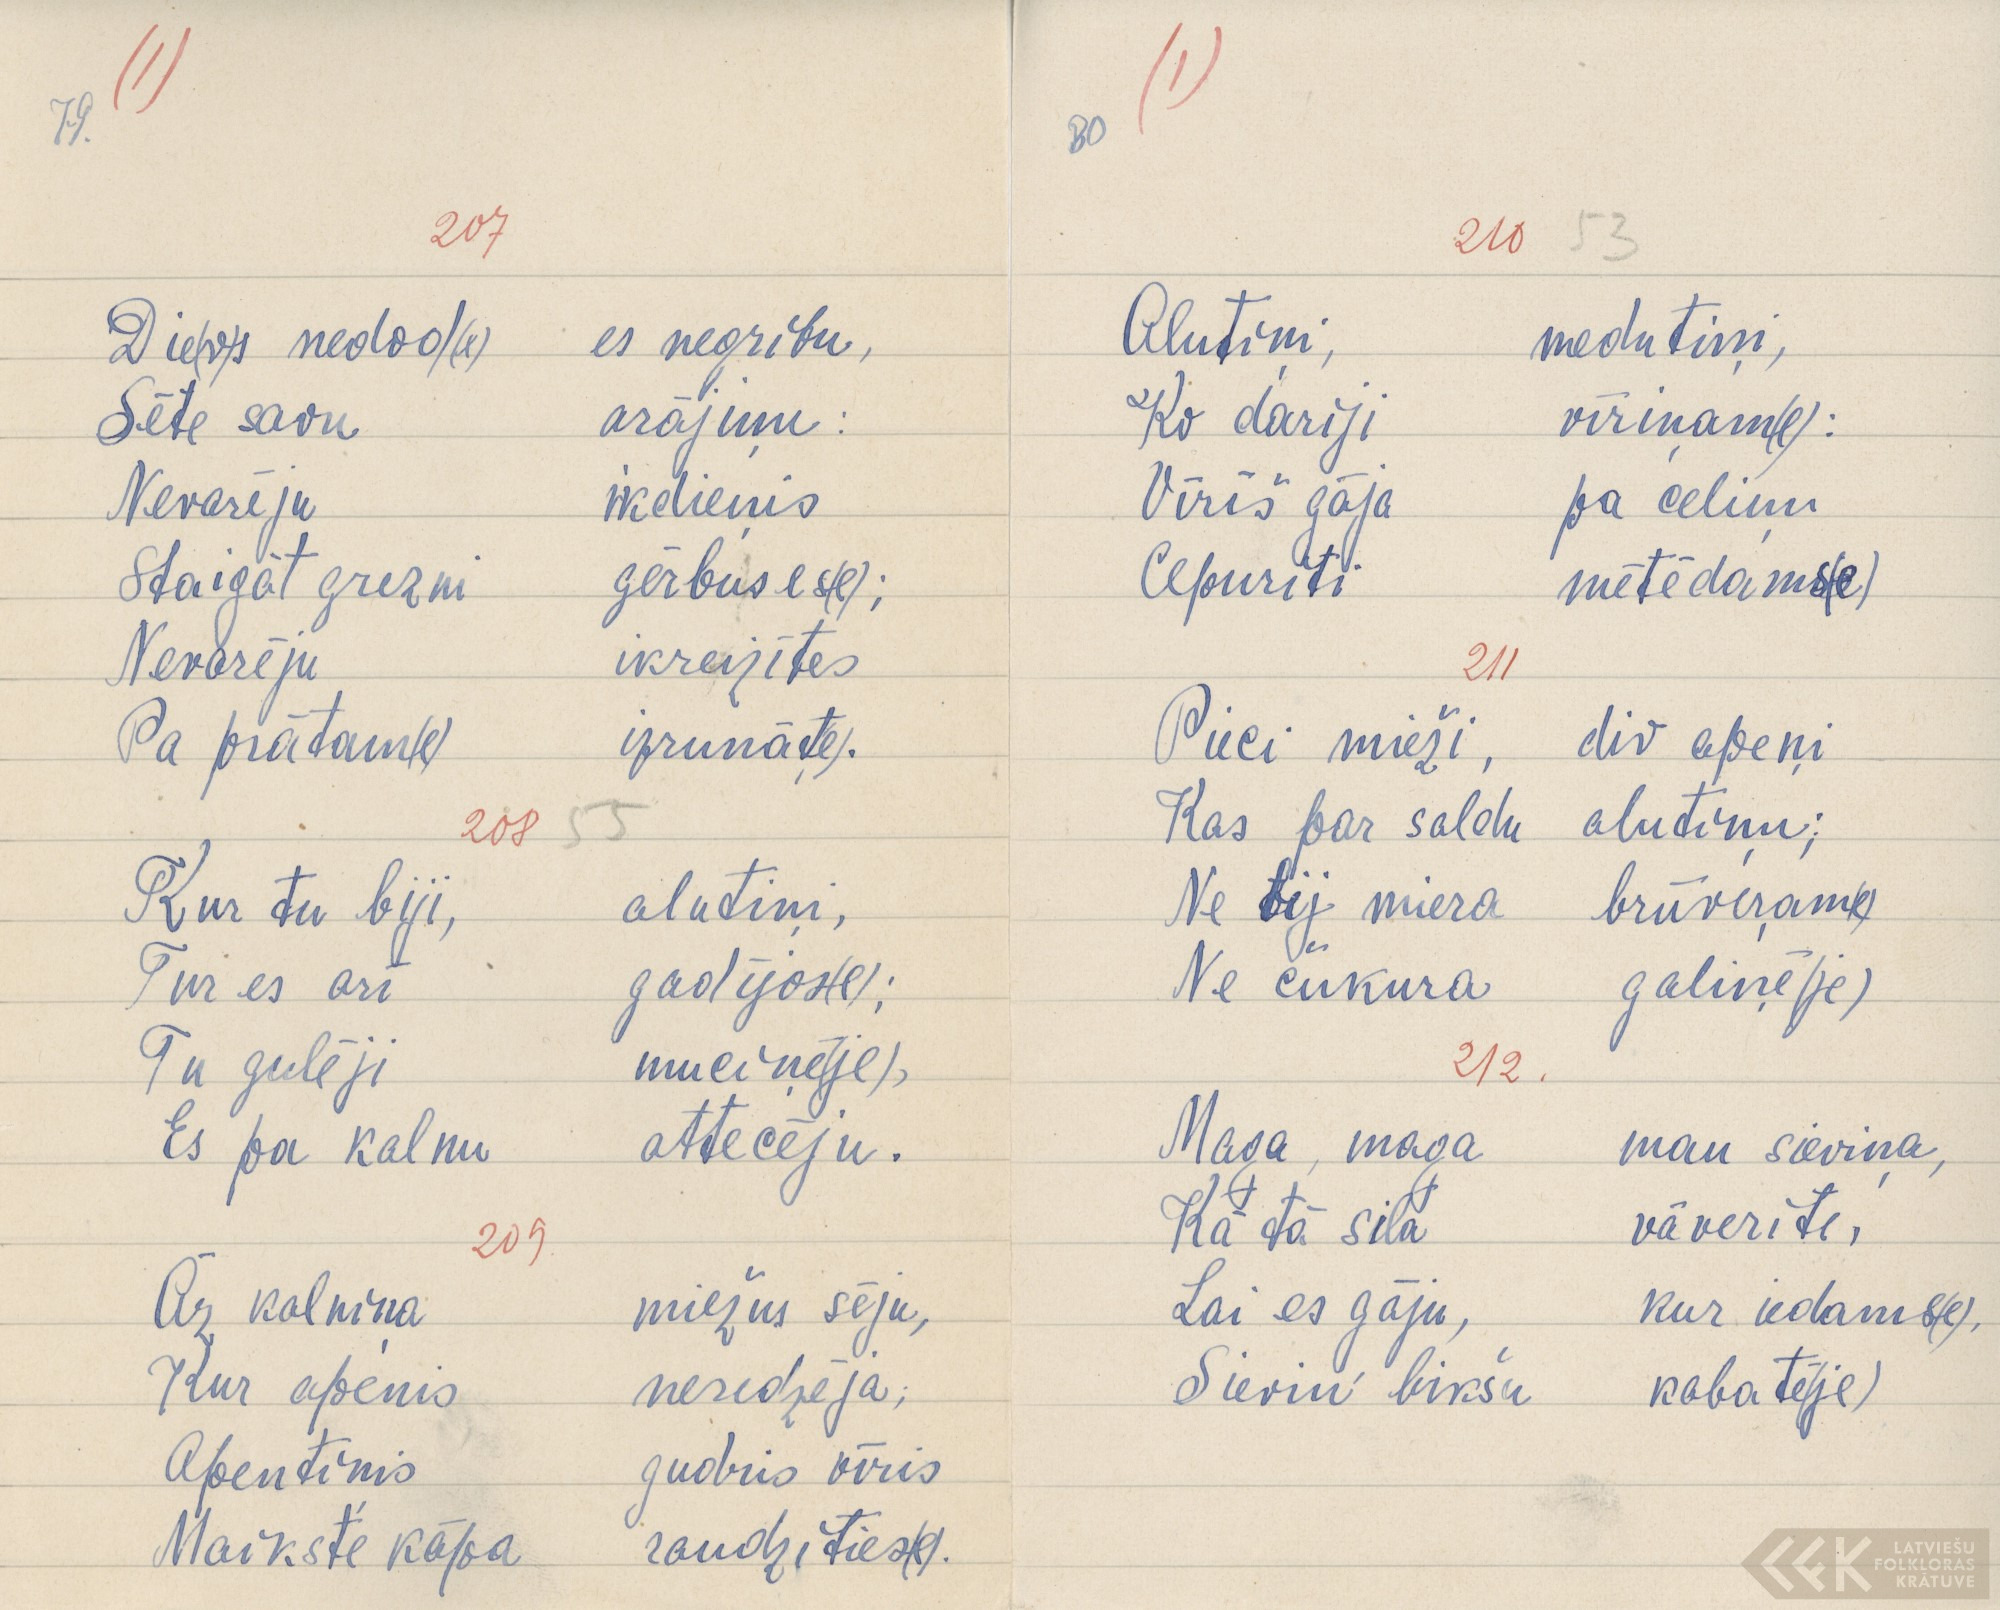 (1)
79.
207
Die(v)s nedod(e) es negribu,
Sēte savu arājiņu:
Nevarēju ikdieņis
Staigāt grezni gērbuses(e);
Nevarēju ikreizītes
Pa prātam(e) izrunāt(e).
208 55
Kur tu biji, alutiņi,
Tur es arī gadījos(e);
Tu gulēji muciņē(je),
Es pa kalnu attecēju.
209
Āz kalniņa miežus sēju,
Kur apenis neredzēja;
Apentinis gudris vīris
Maikstē kāpa raudzīties(e).
(1)
80
210 53
Alutiņi, medutiņi,
Ko darīji vīriņam(e):
Vīriš gāja pa celiņu
Cepurīti mētēdams(e)
211
Pieci mieži, div apeņi
Kas par saldu alutiņu;
Ne bij miera brūveŗam(e)
Ne čukura galiņē(je)
212.
Maga, maga man sieviņa,
Kā tā sila vāverīte,
Lai es gāju, kur iedams(e),
Sieviņ' bikšu kabatē(je)
LATVIEŠU
FOLKLORAS
KRĀTUVE